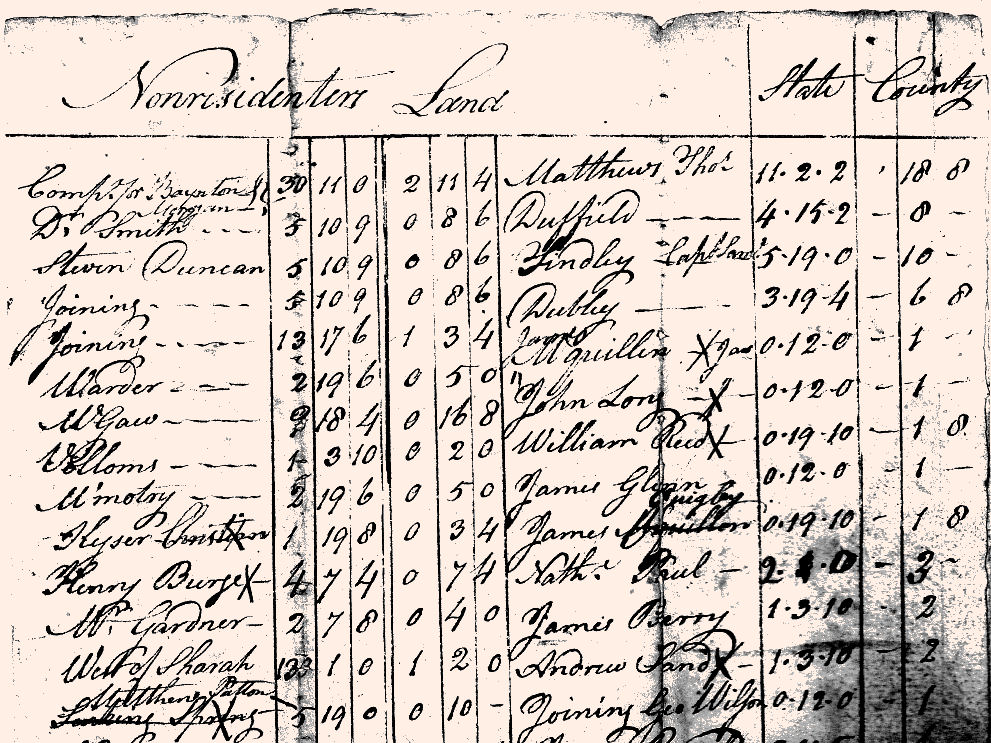 Nonresidenters Land State County
Comp.s for Baynton & 30 11 0 2 11 4 Matthews Tho.s 11.2.2 18 8
Morgan
Dr Smith --- 5 10 9 0 8 6 Duffield --- 4.15.2 - 8 -
Steven Duncan 5 10 9 0 8 6 Findley Capt Sam.l 5.19.0 - 10 -
Joining --- 5 10 9 0 8 6 Dubley --- 3.19.4 - 6 8
Joining --- 13 17 6 1 3 4 James Mquillin X Jas 0.12.0 - 1 -
Warder --- 2 19 6 0 5 0 John Long X 0.12.0 - 1 -
McGaw --- 18 4 0 16 8 William Reed X 0.19.10 - 1 8
Velloms --- 1 3 10 0 2 0 James Glenn 0.12.0 - 1 -
M'motry --- 2 19 6 0 5 0 Quigley
Keyser Christian 1 19 8 0 3 4 James Mquillon 0.19.10 - 1 8
Henry Burge X 4 7 4 0 7 4 Nath.l Paul - 2. .0 - 3 -
Mr. Gardner - 2 7 8 0 4 0 James Berry 1.3.10 - 2
West of Sharah 133 1 0 1 2 0 Andrew Sand X - 1.3.10 - 2
Matthew Patton
Larking Spring X 5 19 0 0 10 - Joining Geo Wilson 0.12.0 - 1